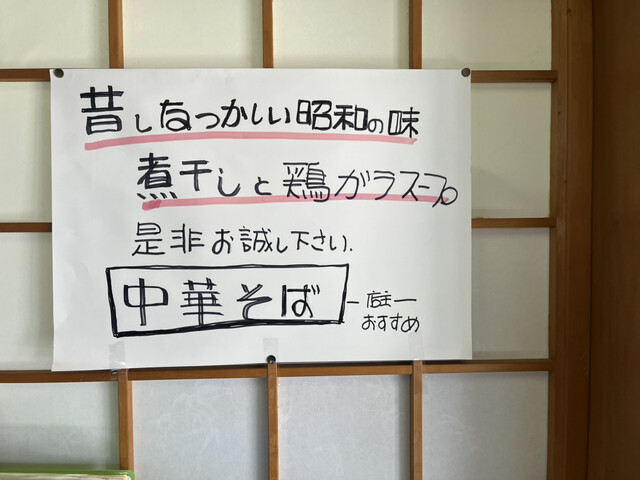 昔しなつかしい昭和の味
煮干しと鶏ガラスープ。
是非お誠し下さい.
中華そば
ー店主ー
おすすめ